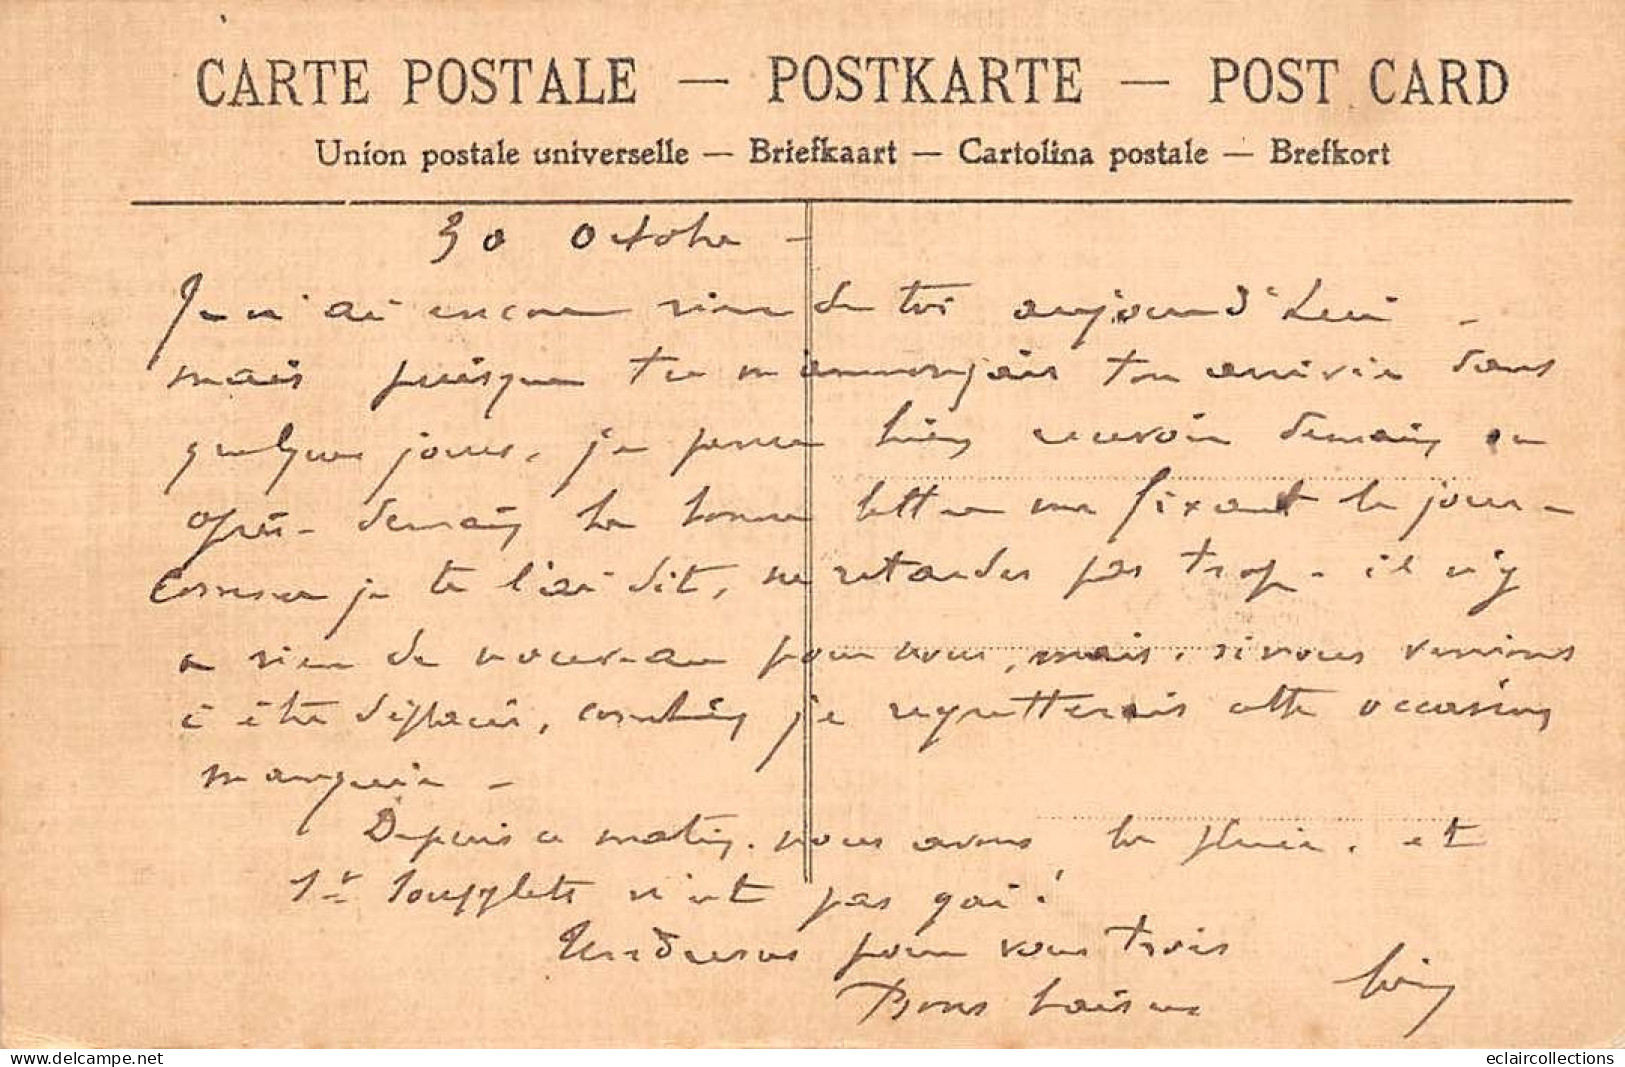 CARTE POSTALE — POSTKARTE — POST CARD
Union postale universelle — Briefkaart — Cartolina postale — Brefkort
30 Octobre -
Je n'ai encore rien de toi aujourd'hui -
mais puisque tu m'annonçais ton arrivée dans
quelques jours, je pense bien recevoir demain ou
après-demain la bonne lettre me fixant le jour -
Comme je te l'ai dit, ne retardes pas trop - il n'y
a rien de nouveau pour nous, mais, si nous venions
à être déplacés, combien je regretterais cette occasion
manquée -
Depuis ce matin, nous avons la pluie, et
St Soupplets n'est pas gai !
Tendresses pour vous trois
Bons baisers